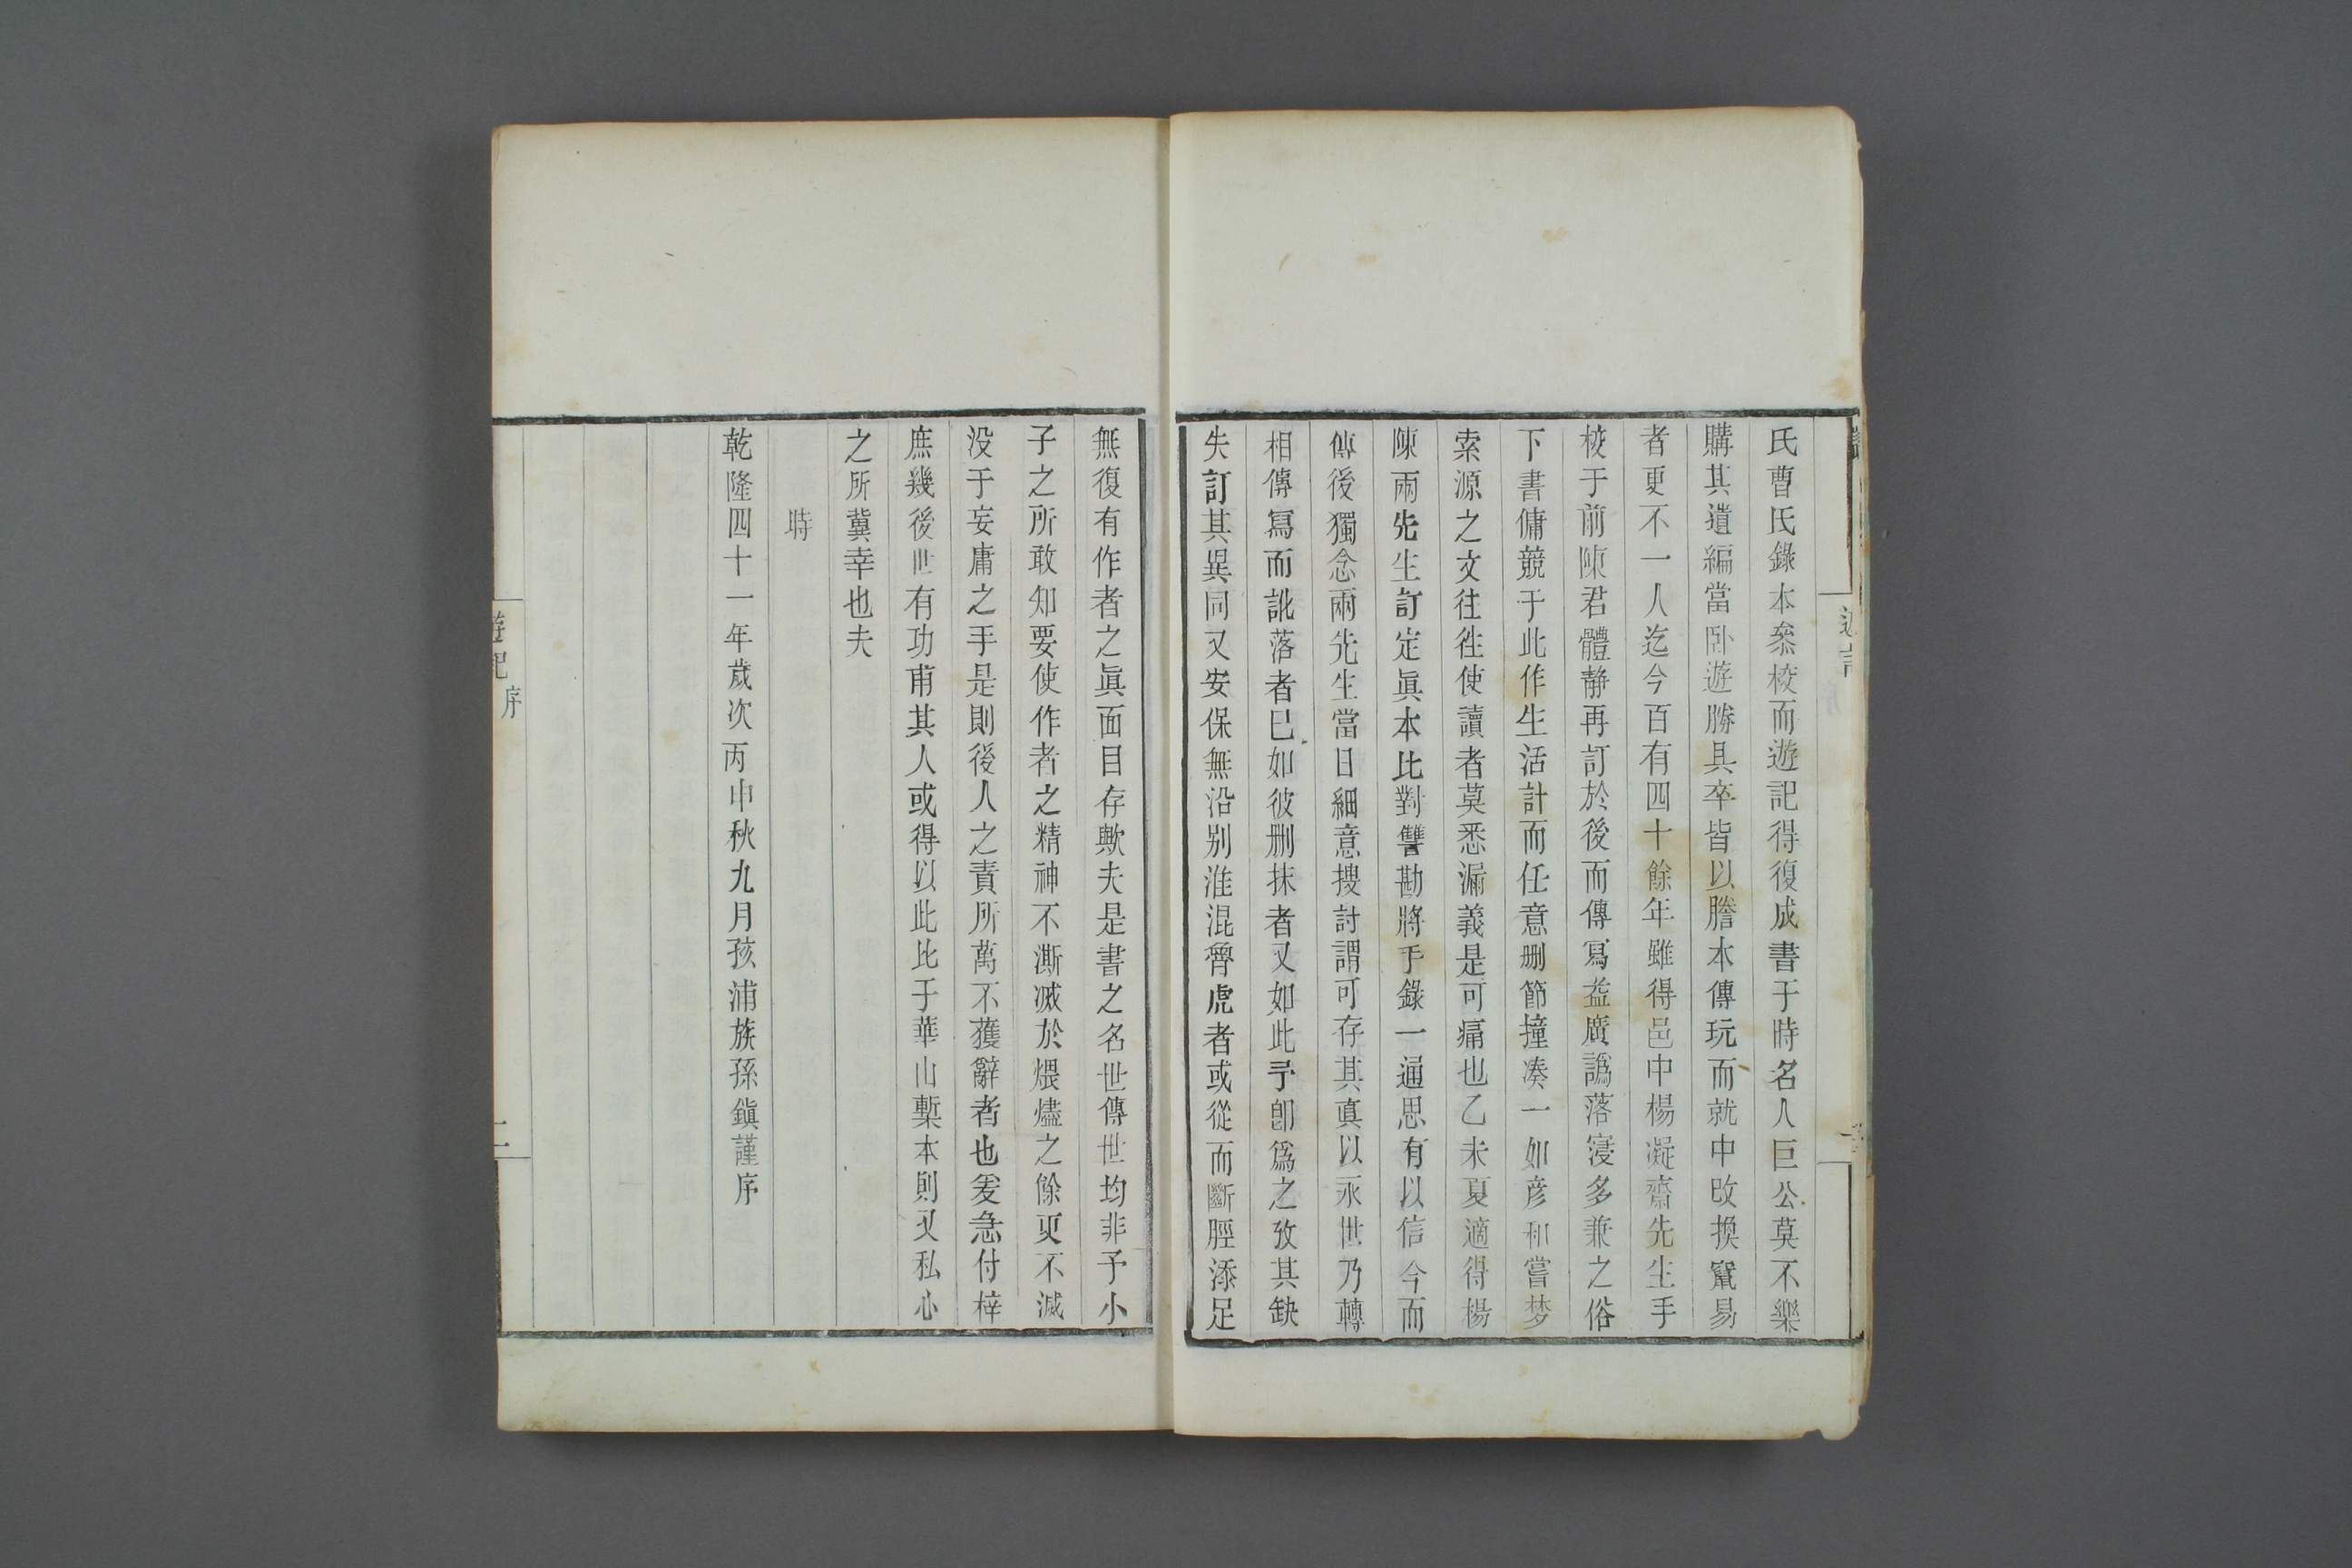 氏曹氏錄本叅校而遊記得復成書于時名人巨公莫不樂
購其遺編當臥遊勝具卒皆以謄本傳玩而就中攺換竄易
者更不一人迄今百有四十餘年雖得邑中楊凝齋先生手
校于前陳君體靜再訂於後而傳寫益廣譌落寖多兼之俗
下書傭競于此作生活計而任意刪節撞凑一如彦和嘗梦
索源之文往徃使讀者莫悉漏義是可痛也乙未夏適得楊
陳兩先生訂定眞本比對讐勘將手錄一通思有以信今而
傳後獨念兩先生當日細意搜討謂可存其眞以永世乃轉
相傳寫而訛落者已如彼刪抹者又如此予卽爲之攷其缺
失訂其異同又安保無沿别淮混脋虎者或從而斷脛添足
無復有作者之眞面目存歟夫是書之名世傳世均非予小
子之所敢知要使作者之精神不澌滅於煨燼之餘更不滅
没于妄庸之手是則後人之責所萬不獲辭者也爰亟付梓
庶幾後世有功甫其人或得以此比于華山槧本則又私心
之所冀幸也夫
時
乾隆四十一年歲次丙申秋九月孩浦族孫鎭謹序
遊記
序
二